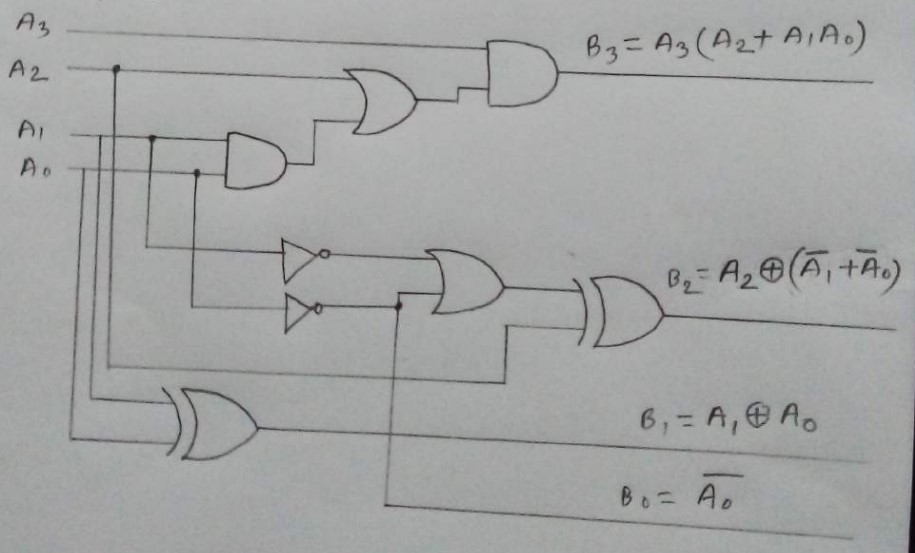 A₃
B₃ = A₃(A₂ + A₁A₀)
A₂
A₁
A₀
B₂ = A₂⊕(A̅₁ + A̅₀)
B₁ = A₁ ⊕ A₀
B₀ = A̅₀